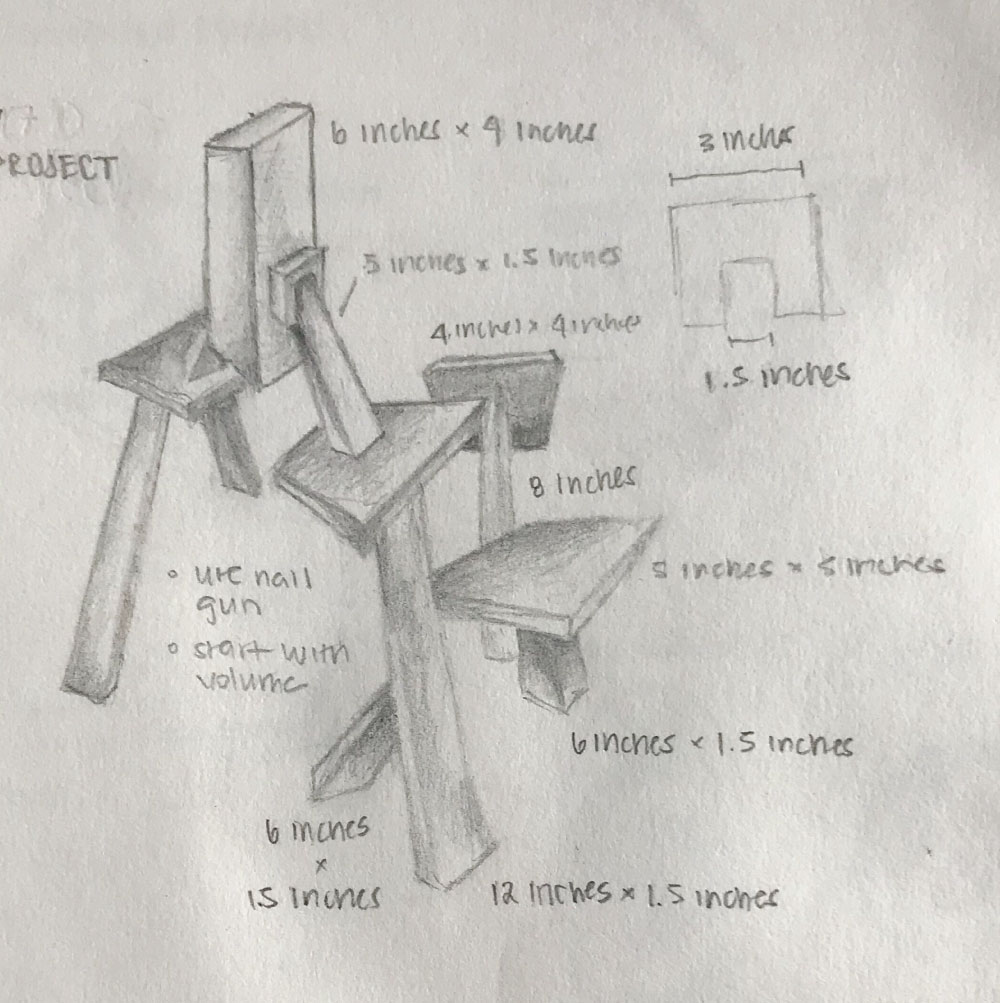 PROJECT
6 inches × 4 inches
3 inches
5 inches × 1.5 inches
4 inches × 4 inches
1.5 inches
8 inches
5 inches × 5 inches
• use nail
gun
• start with
volume
6 inches × 1.5 inches
6 inches
×
1.5 inches
12 inches × 1.5 inches